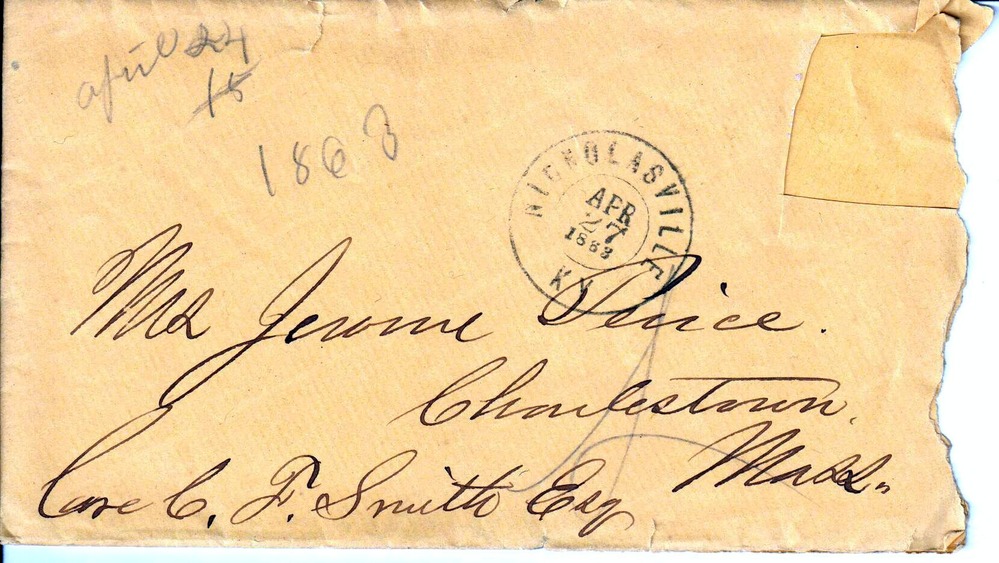 april 24
15
1863
NICHOLASVILLE
APR
27
1863
KY
Mrs Jerome
Charlestown.
Mass.
Care C. F. Smith Esq